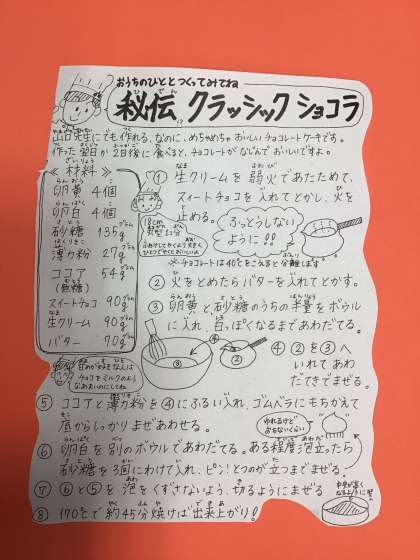 おうちのひととつくってみてね
秘伝 クラッシックショコラ
山口先生にでも作れる、なのに、めちゃめちゃおいしいチョコレートケーキです。
作った翌日か2日後に食べると、チョコレートがなじんでおいしいですよ。
《材料》
卵黄 4個
卵白 4個
砂糖 135g
薄力粉 27g
ココア 54g
(無糖)
スイートチョコ 90g
生クリーム 90g
バター 70g
18cm
丸型1台分
① 生クリームを弱火であたためて、
スイートチョコを入れてとかし、火を
止める。
ふっとうしない
ように!!
※チョコレートは40℃をこえると分離します
② 火をとめたらバターを入れてとかす。
③ 卵黄と砂糖のうちの半量をボウル
に入れ、白っぽくなるまであわだてる。
④ ②を③へ
いれてあわ
だてきでまぜる。
甘めが好きな人は
チョコをミルクのよう
なあまいのにしてね
⑤ ココアと薄力粉を④にふるい入れ、ゴムベラにもちかえて
底からしっかりまぜあわせる。
ゆれるけど
おちないくらい
⑥ 卵白を別のボウルであわだてる。ある程度泡立ったら
砂糖を3回にわけて入れ、ピン!とつのが立つまでまぜる。
⑦ ⑥と⑤を泡をくずさないよう、切るようにまぜる
⑧ 170℃で約45分焼けば出来上がり!